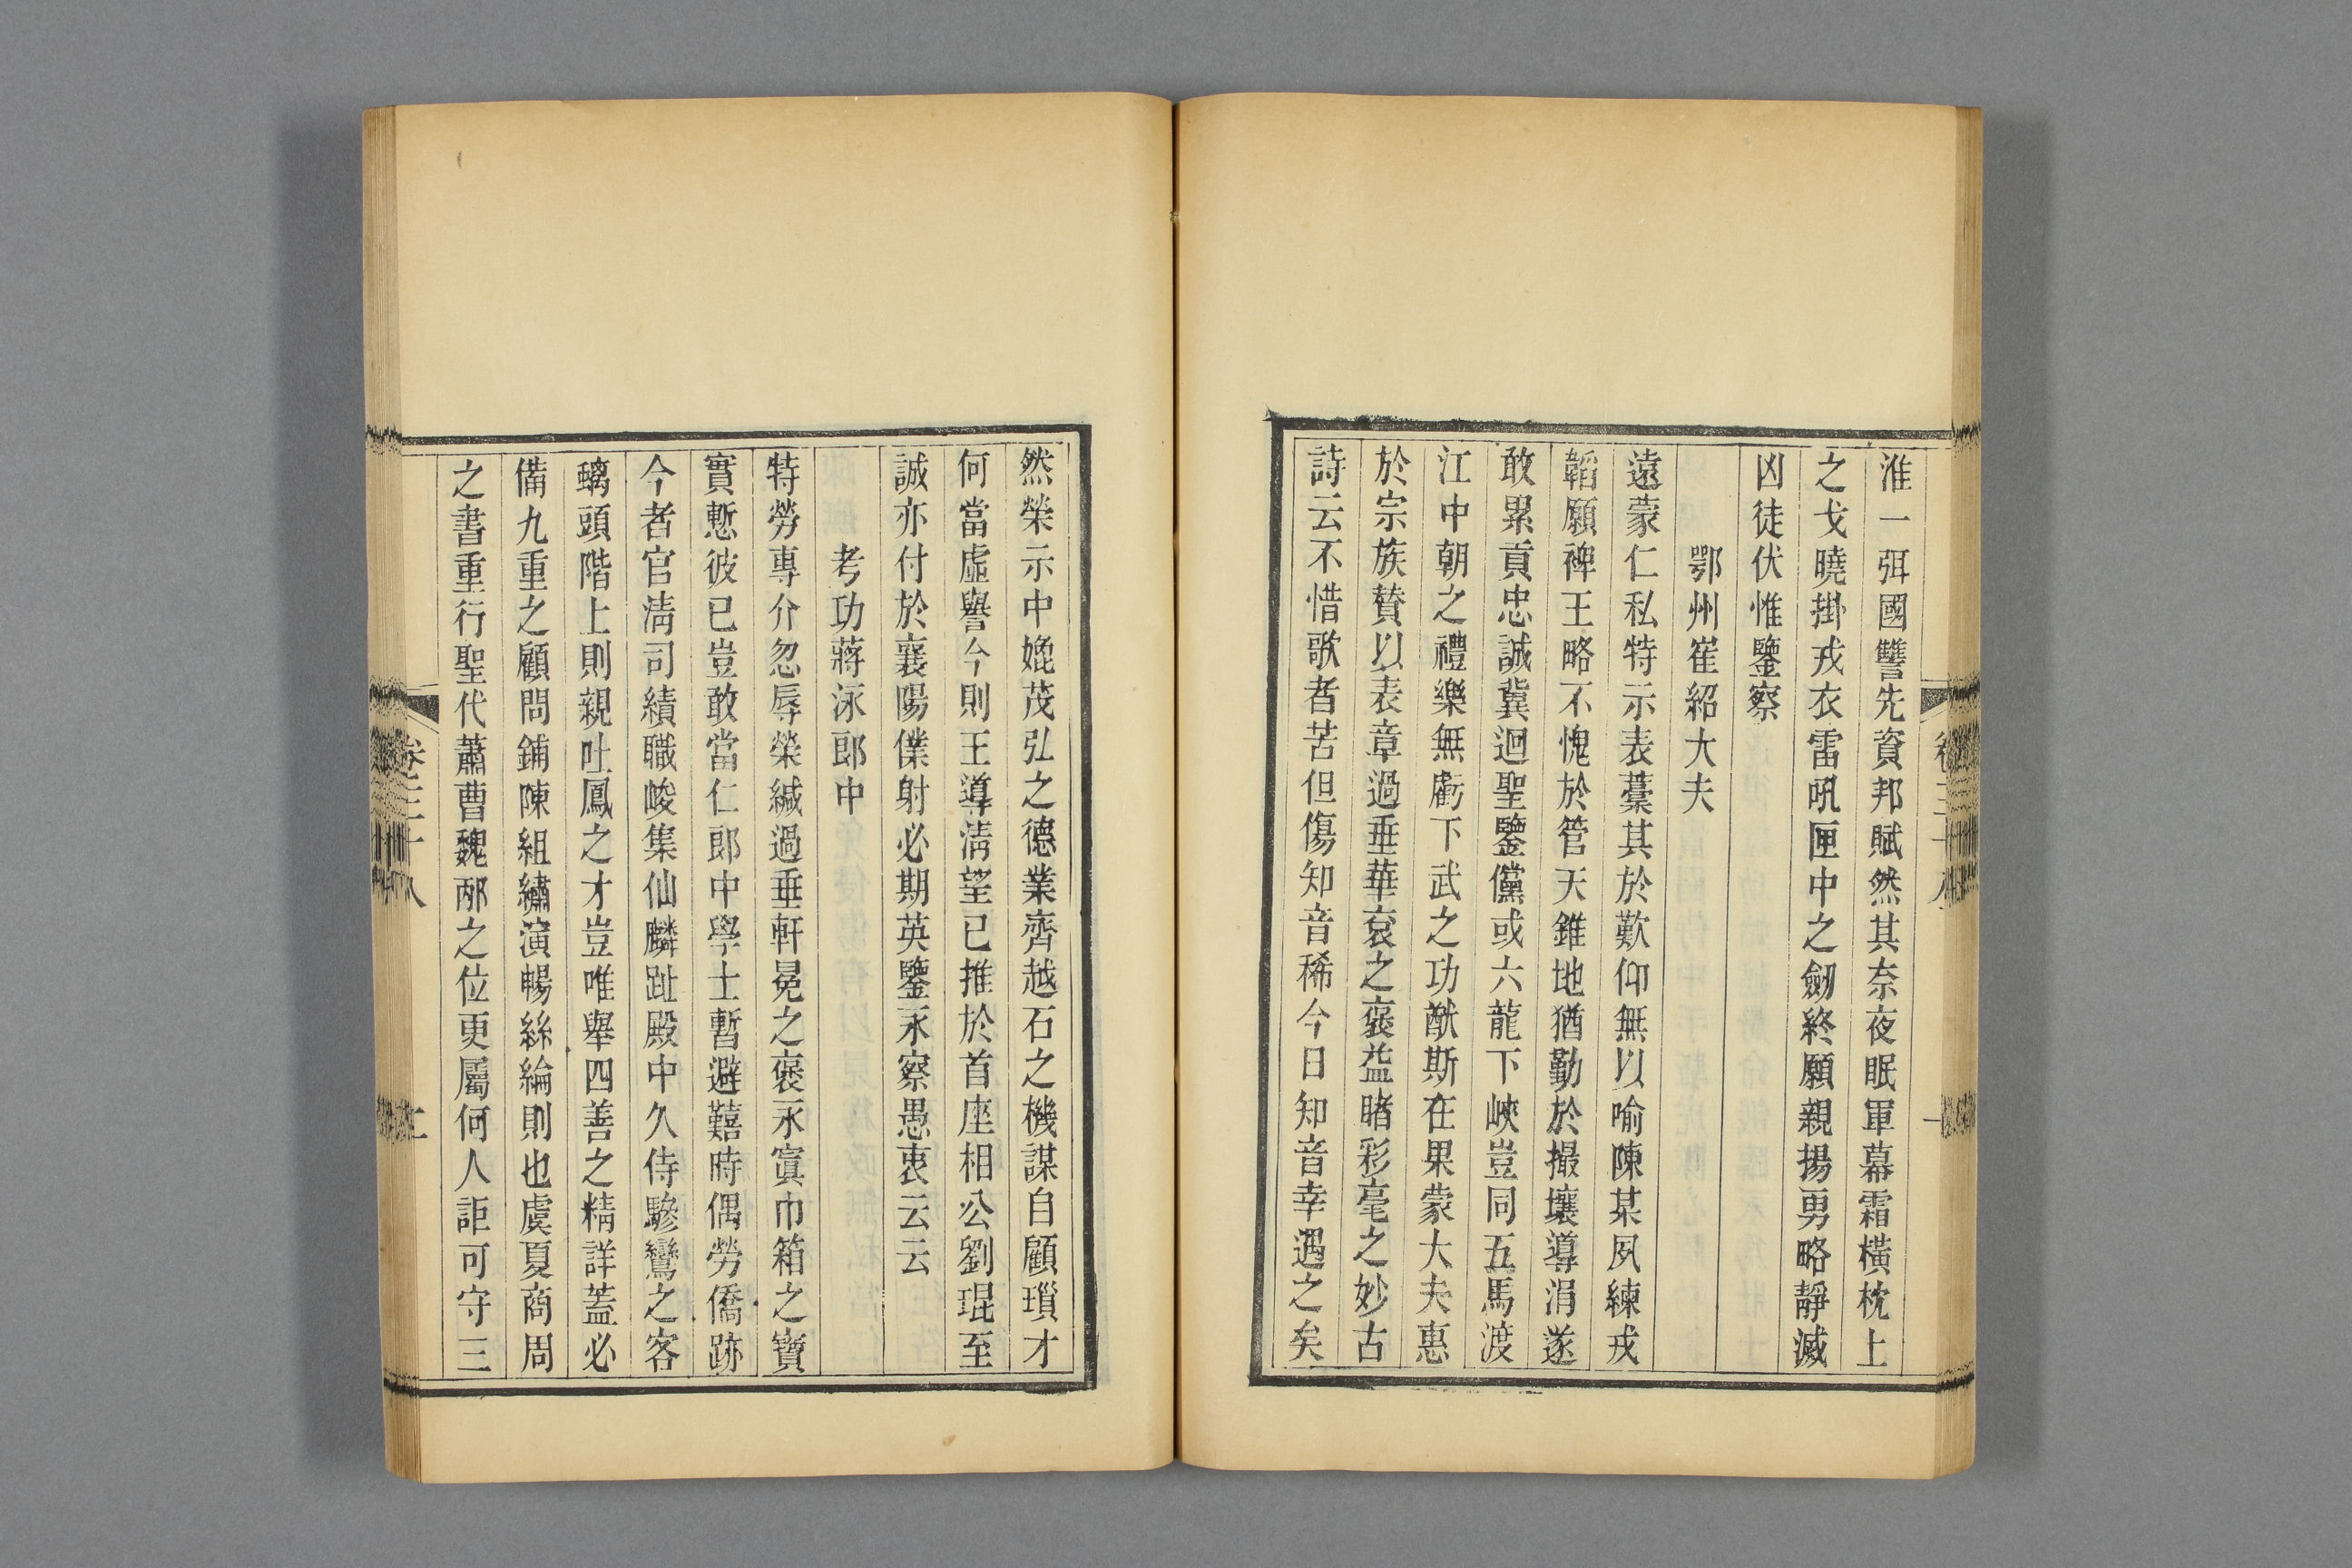 淮一弭國讐先資邦賦然其奈夜眠軍幕霜橫枕上
之戈曉掛戎衣雷吼匣中之劒終願親揚勇略靜滅
凶徒伏惟鑒察
鄂州崔紹大夫
遠蒙仁私特示表藁其於歎仰無以喻陳某夙練戎
韜願裨王略不愧於管天錐地猶勤於撮壤導涓遂
敢累貢忠誠冀迴聖鑒儻或六龍下峽豈同五馬渡
江中朝之禮樂無虧下武之功猷斯在果蒙大夫惠
於宗族贊以表章過垂華袞之褒益睹彩毫之妙古
詩云不惜歌者苦但傷知音稀今日知音幸遇之矣
然榮示中媲茂弘之德業齊越石之機謀自顧瑣才
何當虛譽今則王導淸望已推於首座相公劉琨至
誠亦付於襄陽僕射必期英鑒永察愚衷云云
考功蔣泳郎中
特勞專介忽辱榮緘過垂軒冕之褒永寘巾箱之寶
實慙彼已豈敢當仁郎中學士暫避囏時偶勞僑跡
今者官淸司績職峻集仙麟趾殿中久侍驂鸞之客
螭頭階上則親吐鳳之才豈唯舉四善之精詳蓋必
備九重之顧問鋪陳組繡演暢絲綸則也虞夏商周
之書重行聖代蕭曹魏邴之位更屬何人詎可守三
卷三十八